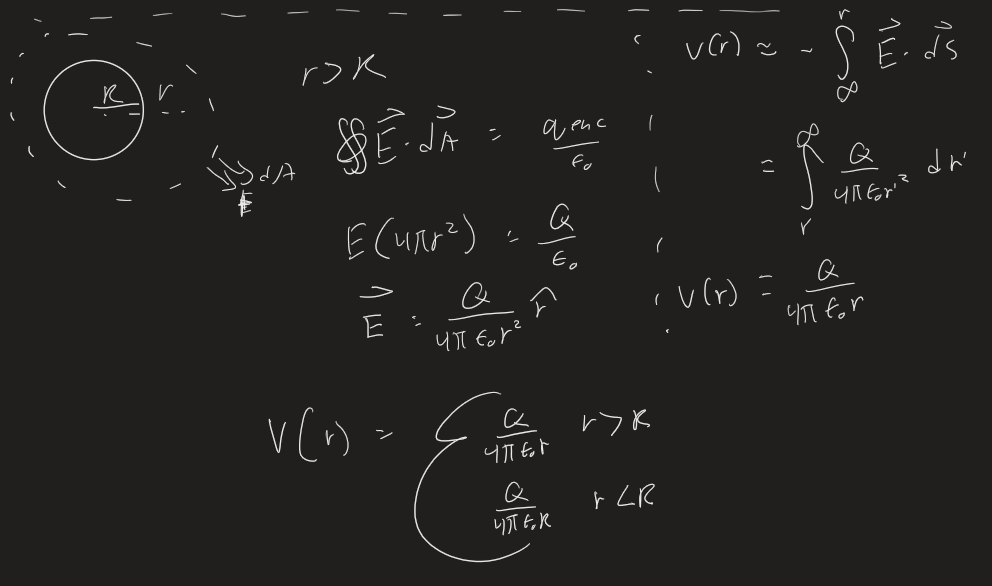 R r
dA
E
r > R
∯ E⃗ · dA⃗ = q enc / ε₀
E(4πr²) = Q / ε₀
E⃗ = Q / 4πε₀r² r̂
V(r) ≃ - ∫_∞^r E⃗ · dS⃗
= ∫_r^∞ Q / 4πε₀r'² dr'
V(r) = Q / 4πε₀r
V(r) = { Q / 4πε₀r r > R
Q / 4πε₀R r < R